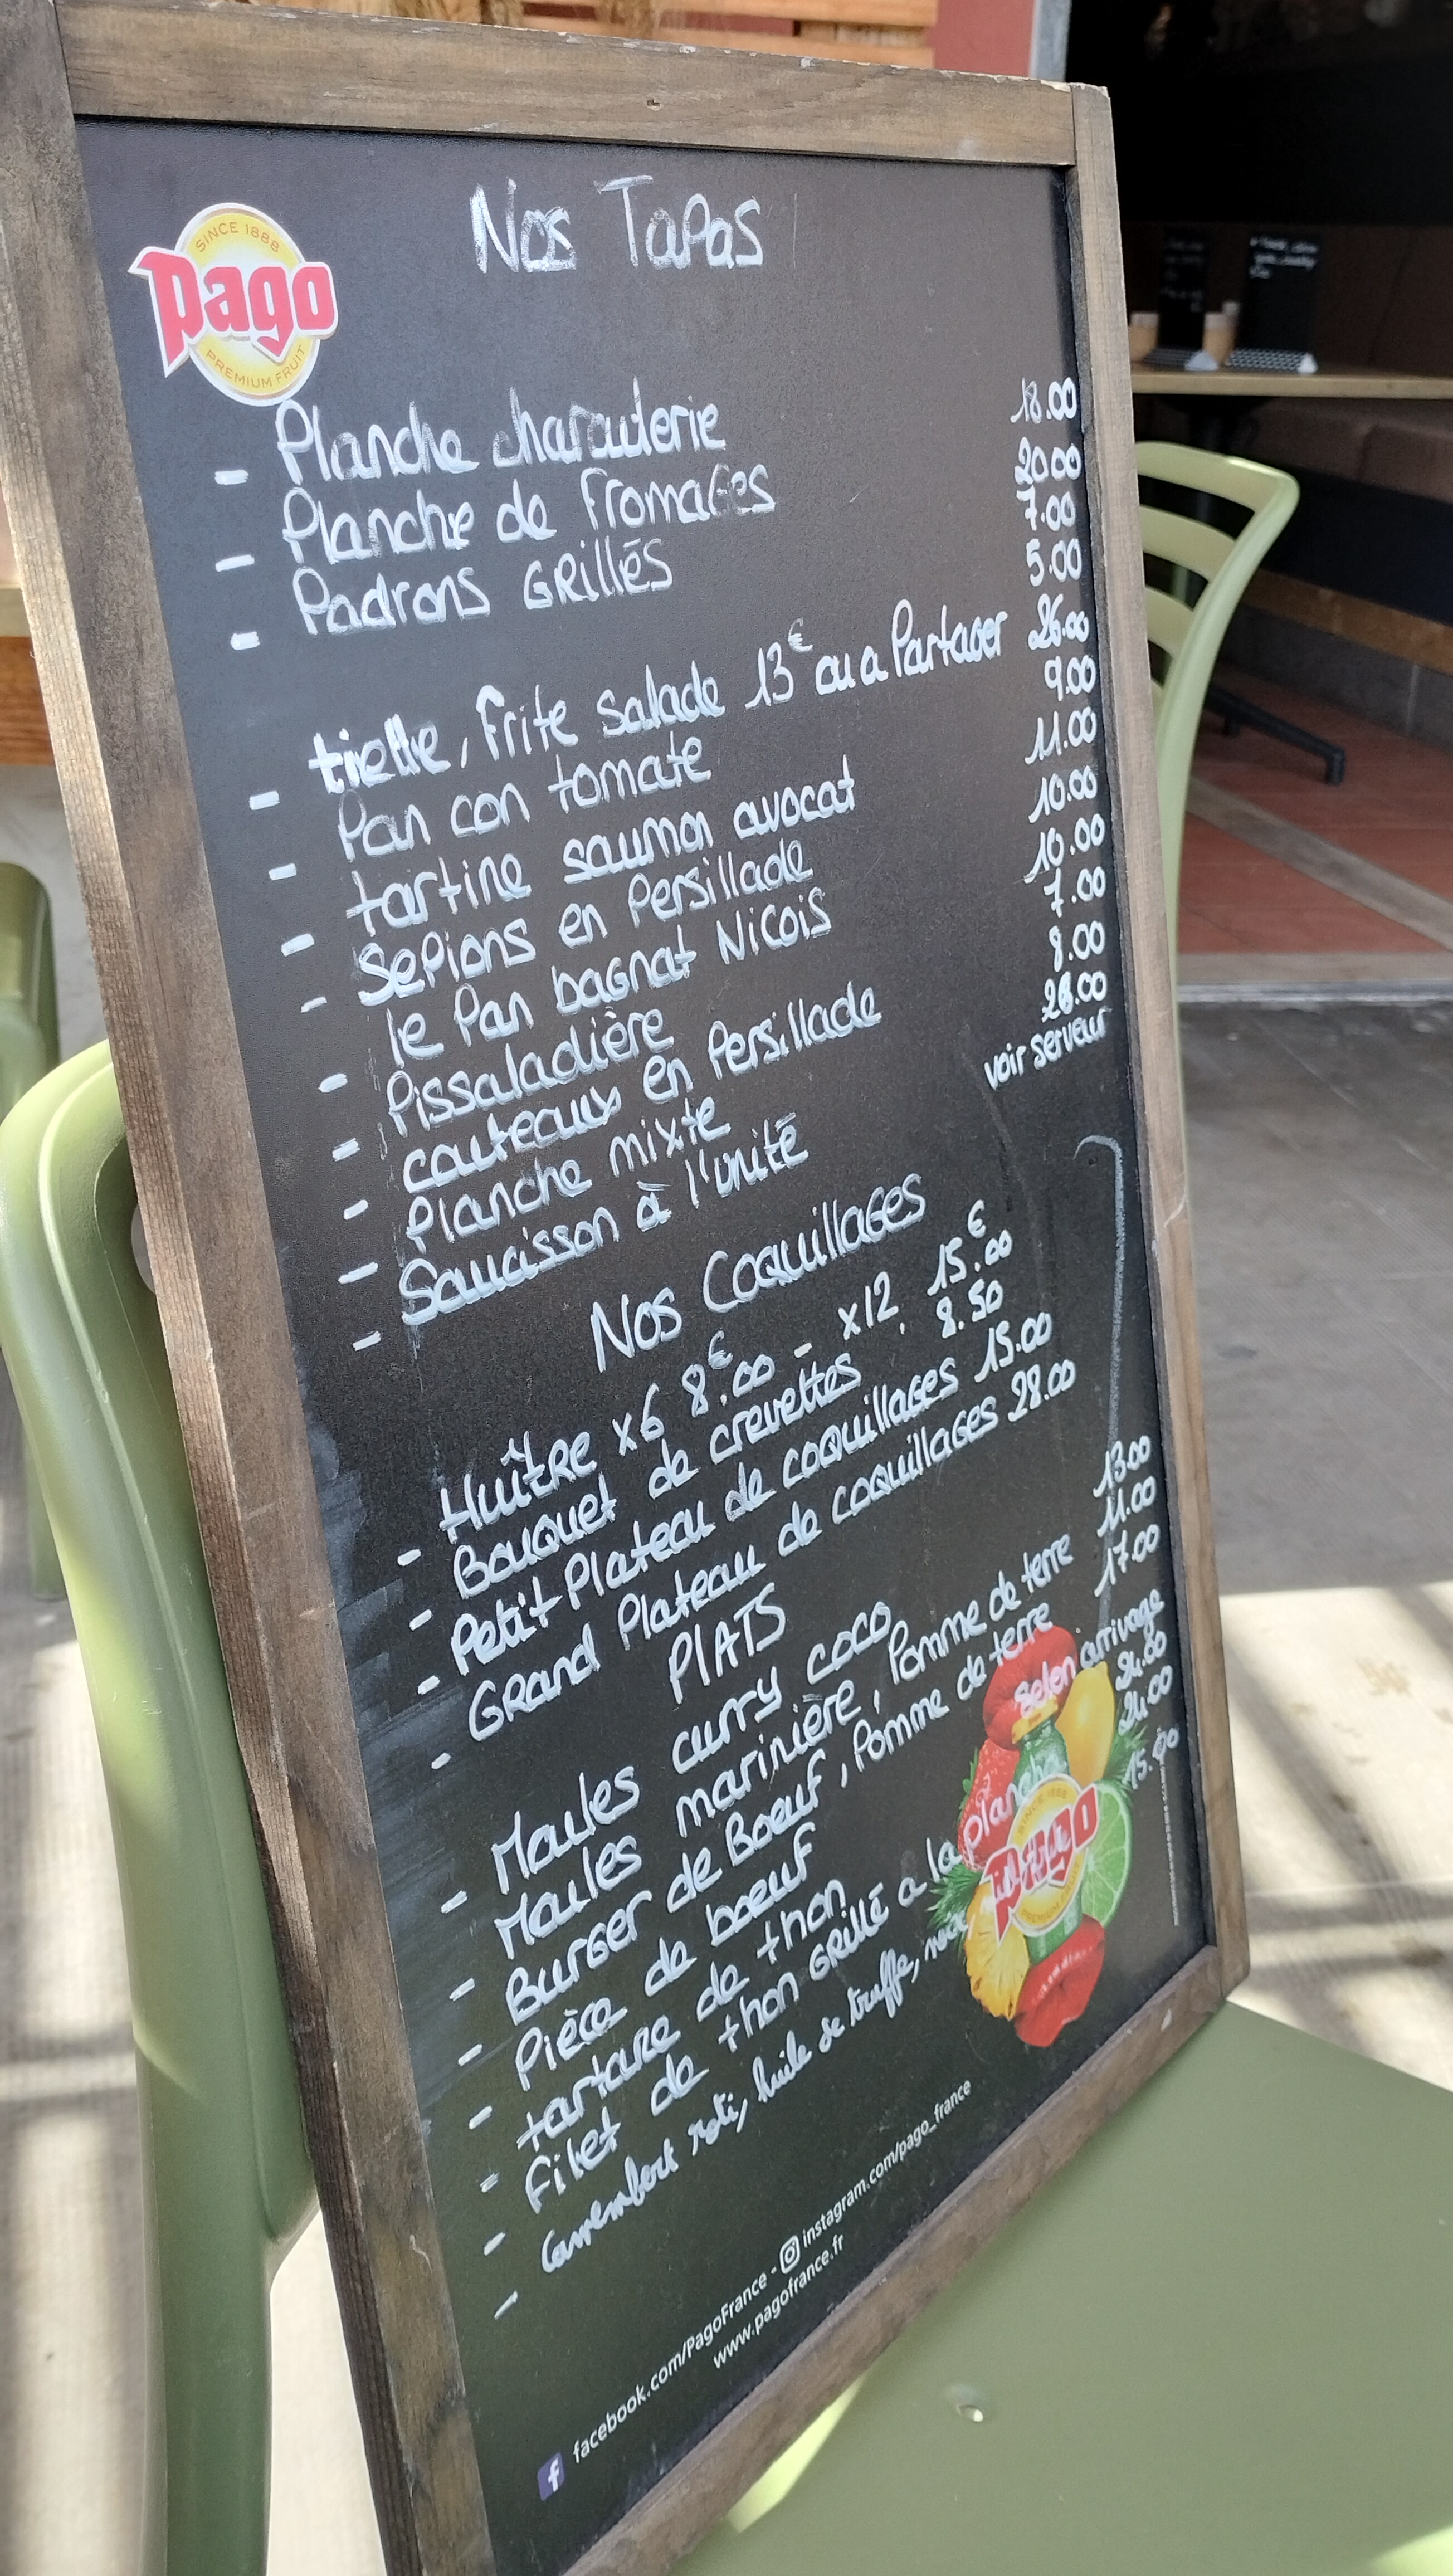 Nos Tapas
SINCE 1888
Pago
PREMIUM FRUIT
- Planche charcuterie 18.00
- Planche de fromages 20.00
- Padrons GRillés 7.00
5.00
- tielle, frite salade 13€ ou a Partager 26.00
- Pan con tomate 9.00
- tartine saumon avocat 11.00
- Sepions en Persillade 10.00
- le Pan bagnat Nicois 10.00
- Pissaladière 7.00
- couteaux en Persillade 8.00
- Planche mixte 26.00
- Saucisson à l'unité voir serveur
Nos Coquillages
- Huître x6 8€.00 - x12. 15€.00
- Bouquet de crevettes 8.50
- Petit Plateau de coquillages 15.00
- Grand Plateau de coquillages 28.00
PlATS
- Moules curry coco 13.00
- Moules marinière, Pomme de terre 11.00
- Burger de Boeuf, Pomme de terre 17.00
- Pièce de boeuf Selon arrivage
- tartare de thon 24.00
- filet de thon GRillé a la Plancha 24.00
- Camembert roti, huile de truffe, 15.00
SINCE 1888
PREMIUM FRUIT
facebook.com/PagoFrance - instagram.com/pago_france
www.pagofrance.fr